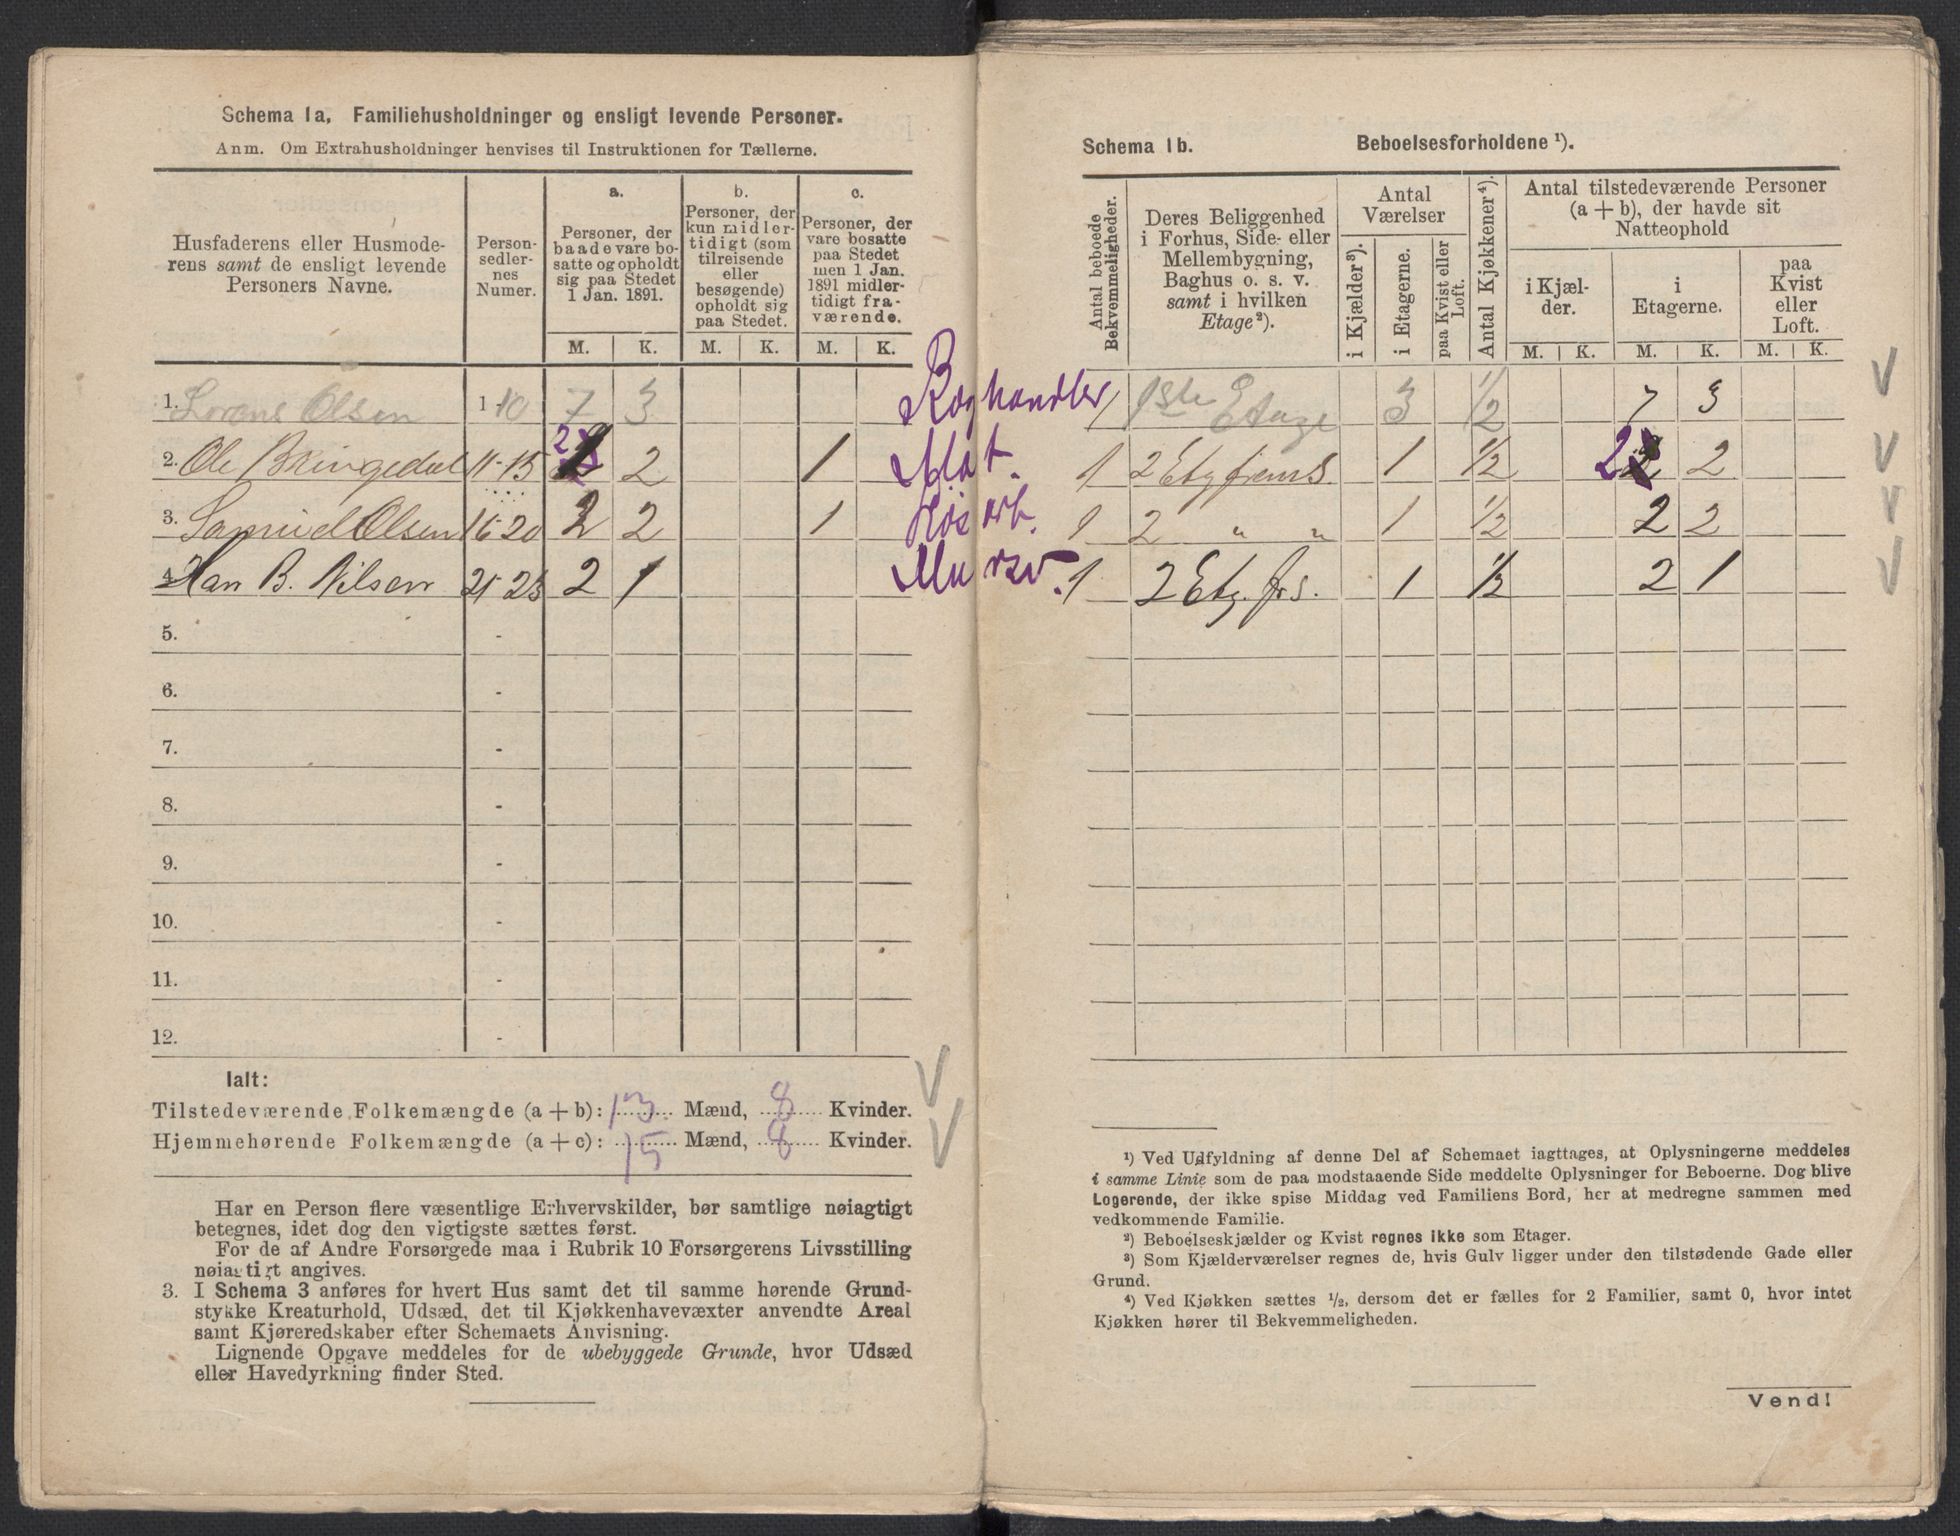 Schema 1a, Familiehusholdninger og ensligt levende Personer.
Anm. Om Extrahusholdninger henvises til Instruktionen for Tællerne.
Husfaderens eller Husmode-
rens samt de ensligt levende
Personers Navne.
Person-
sedler-
nes
Numer.
a.
Personer, der
baade vare bo-
satte og opholdt
sig paa Stedet
1 Jan. 1891.
b.
Personer, der
kun midler-
tidigt (som
tilreisende
eller
besøgende)
opholdt sig
paa Stedet.
c.
Personer, der
vare bosatte
paa Stedet
men 1 Jan.
1891 midler-
tidigt fra-
værende.
M. K. M. K. M. K.
1. Lorens Olsen 1-10 7 3 Boghandler
2. Ole Bringedal 11-15 2 2 1 Mat.
3. Samuel Olsen 16-20 2 2 1 arb.
4. Han B. Nilsen 21-23 2 1 Mursv.
5. -
6. -
7. -
8. -
9. -
10. -
11. -
12. -
Ialt:
Tilstedeværende Folkemængde (a + b): 13 Mænd, 8 Kvinder.
Hjemmehørende Folkemængde (a + c): 15 Mænd, 8 Kvinder.
Har en Person flere væsentlige Erhvervskilder, bør samtlige nøiagtigt
betegnes, idet dog den vigtigste sættes først.
For de af Andre Forsørgede maa i Rubrik 10 Forsørgerens Livsstilling
nøiagtigt angives.
3. I Schema 3 anføres for hvert Hus samt det til samme hørende Grund-
stykke Kreaturhold, Udsæd, det til Kjøkkenhavevæxter anvendte Areal
samt Kjøreredskaber efter Schemaets Anvisning.
Lignende Opgave meddeles for de ubebyggede Grunde, hvor Udsæd
eller Havedyrkning finder Sted.
Schema 1b. Beboelsesforholdene ¹).
Antal beboede
Bekvemmeligheder.
Deres Beliggenhed
i Forhus, Side- eller
Mellembygning,
Baghus o. s. v.
samt i hvilken
Etage²).
Antal
Værelser
i Kjælder³).
i Etagerne.
paa Kvist eller
Loft.
Antal Kjøkkener⁴).
Antal tilstedeværende Personer
(a + b), der havde sit
Natteophold
i Kjæl-
der.
i
Etagerne.
paa
Kvist
eller
Loft.
M. K. M. K. M. K.
1 1ste Etage 3 1/2 7 3
1 2 Etg frems 1 1/2 2 2
1 2 " " 1 1/2 2 2
1 2 Etg. frs. 1 1/2 2 1
¹) Ved Udfyldning af denne Del af Schemaet iagttages, at Oplysningerne meddeles
i samme Linie som de paa modstaaende Side meddelte Oplysninger for Beboerne. Dog blive
Logerende, der ikke spise Middag ved Familiens Bord, her at medregne sammen med
vedkommende Familie.
²) Beboelseskjælder og Kvist regnes ikke som Etager.
³) Som Kjælderværelser regnes de, hvis Gulv ligger under den tilstødende Gade eller
Grund.
⁴) Ved Kjøkken sættes ½, dersom det er fælles for 2 Familier, samt 0, hvor intet
Kjøkken hører til Bekvemmeligheden.
Vend!